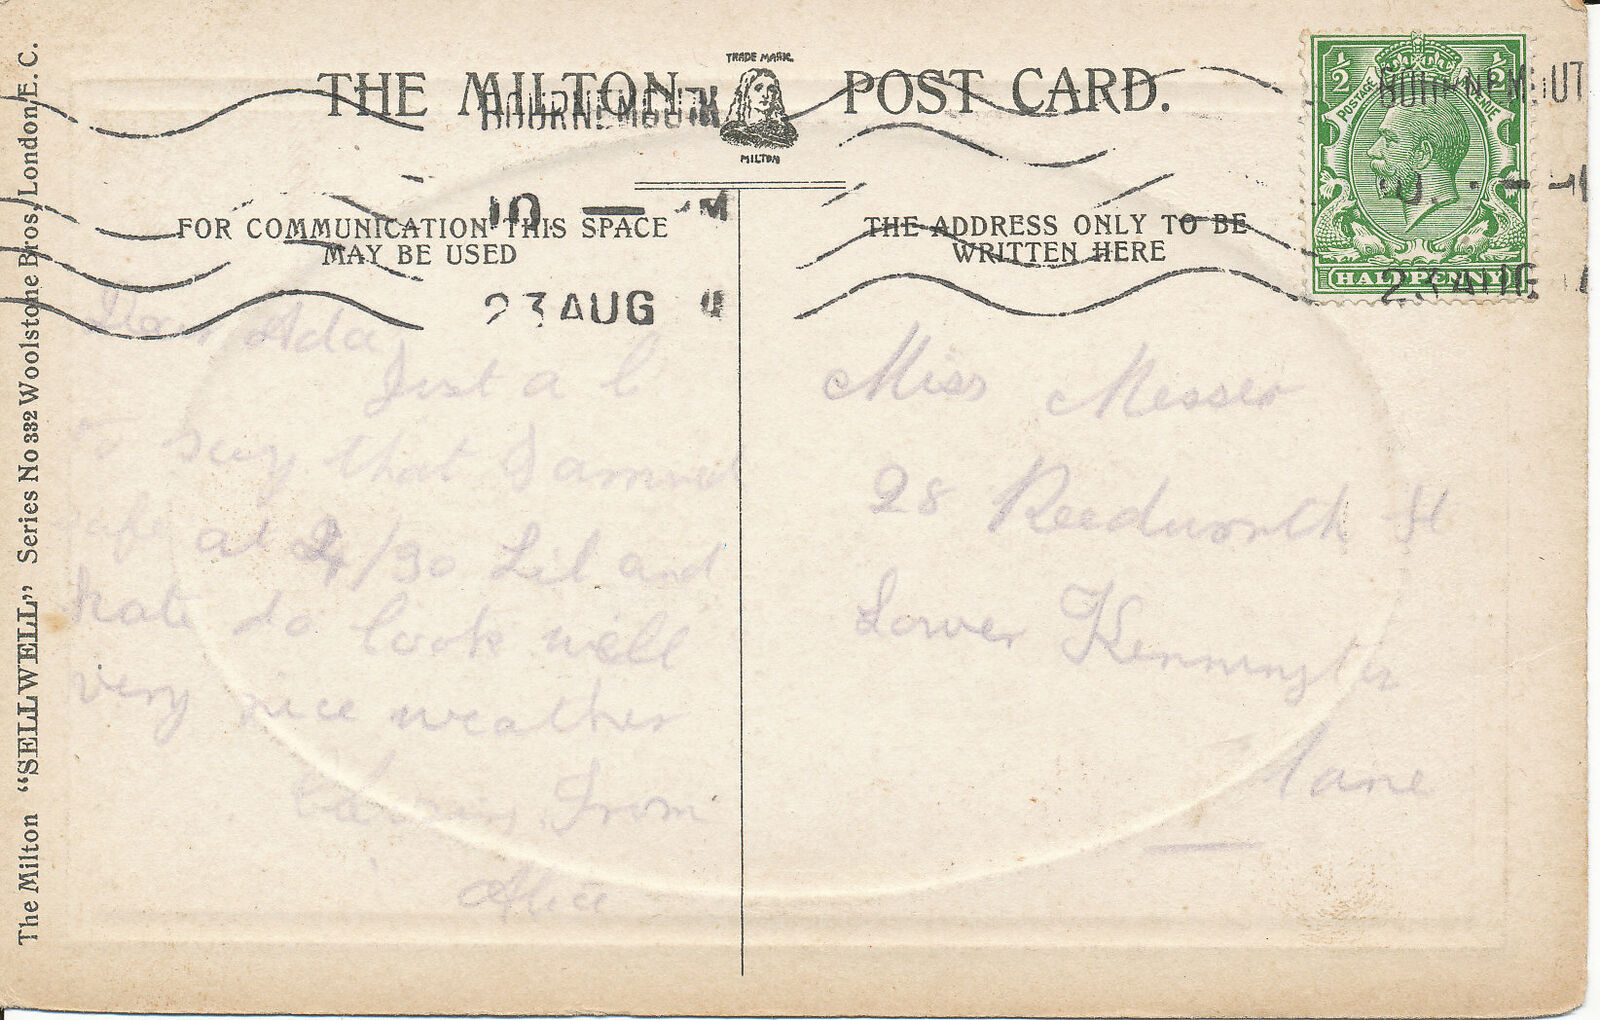 TRADE MARK.
THE MILTON POST CARD.
MILTON
BOURNEMOUTH
10 — M
23 AUG
FOR COMMUNICATION THIS SPACE
MAY BE USED
THE ADDRESS ONLY TO BE
WRITTEN HERE
1/2 1/2
POSTAGE REVENUE
HALFPENNY
BOURNEMOUT
23 AUG
Dear Ada
Just a
to say that I arrived
safe at /30 Lil and
Kate do look well
very nice weather
From
Alice
Miss Messer
28 Reedworth St
Lower Kennington
Lane
The Milton "SELLWELL" Series No 332 Woolstone Bros, London, E. C.